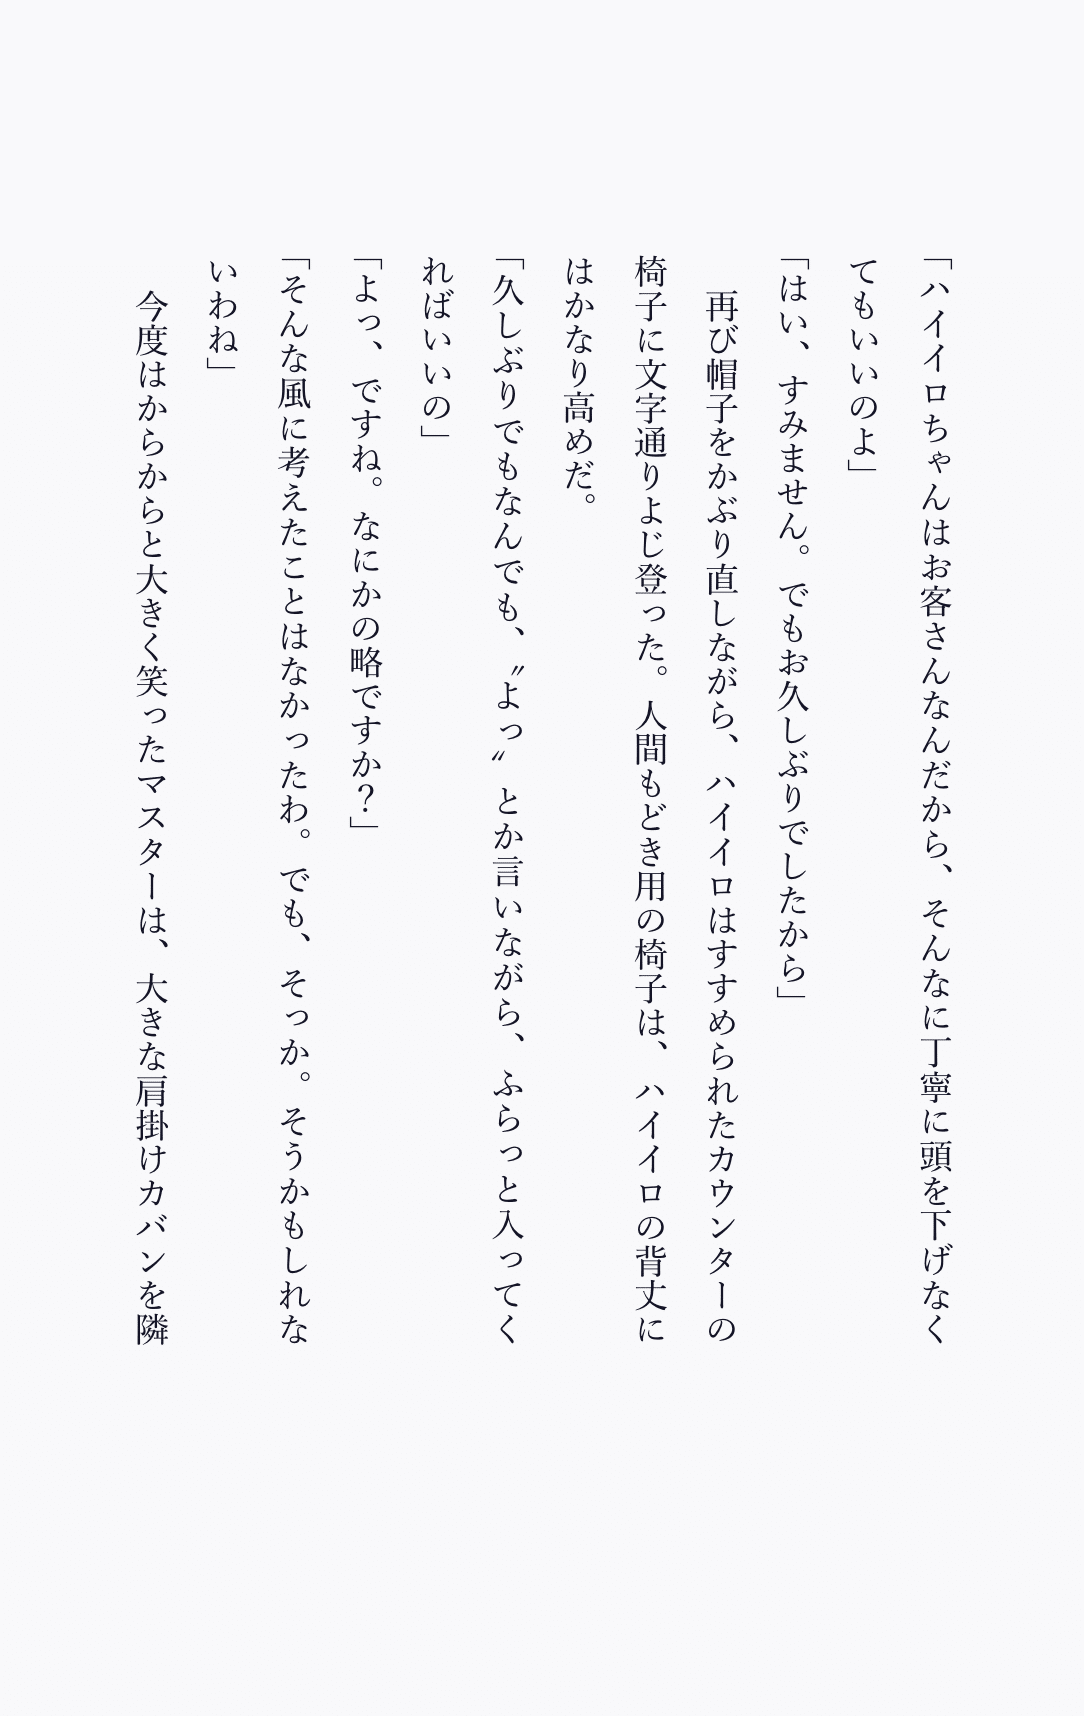 「ハイイロちゃんはお客さんなんだから、そんなに丁寧に頭を下げなく
てもいいのよ」
「はい、すみません。でもお久しぶりでしたから」
　再び帽子をかぶり直しながら、ハイイロはすすめられたカウンターの
椅子に文字通りよじ登った。人間もどき用の椅子は、ハイイロの背丈に
はかなり高めだ。
「久しぶりでもなんでも、〝よっ〟とか言いながら、ふらっと入ってく
ればいいの」
「よっ、ですね。なにかの略ですか？」
「そんな風に考えたことはなかったわ。でも、そっか。そうかもしれな
いわね」
　今度はからからと大きく笑ったマスターは、大きな肩掛けカバンを隣